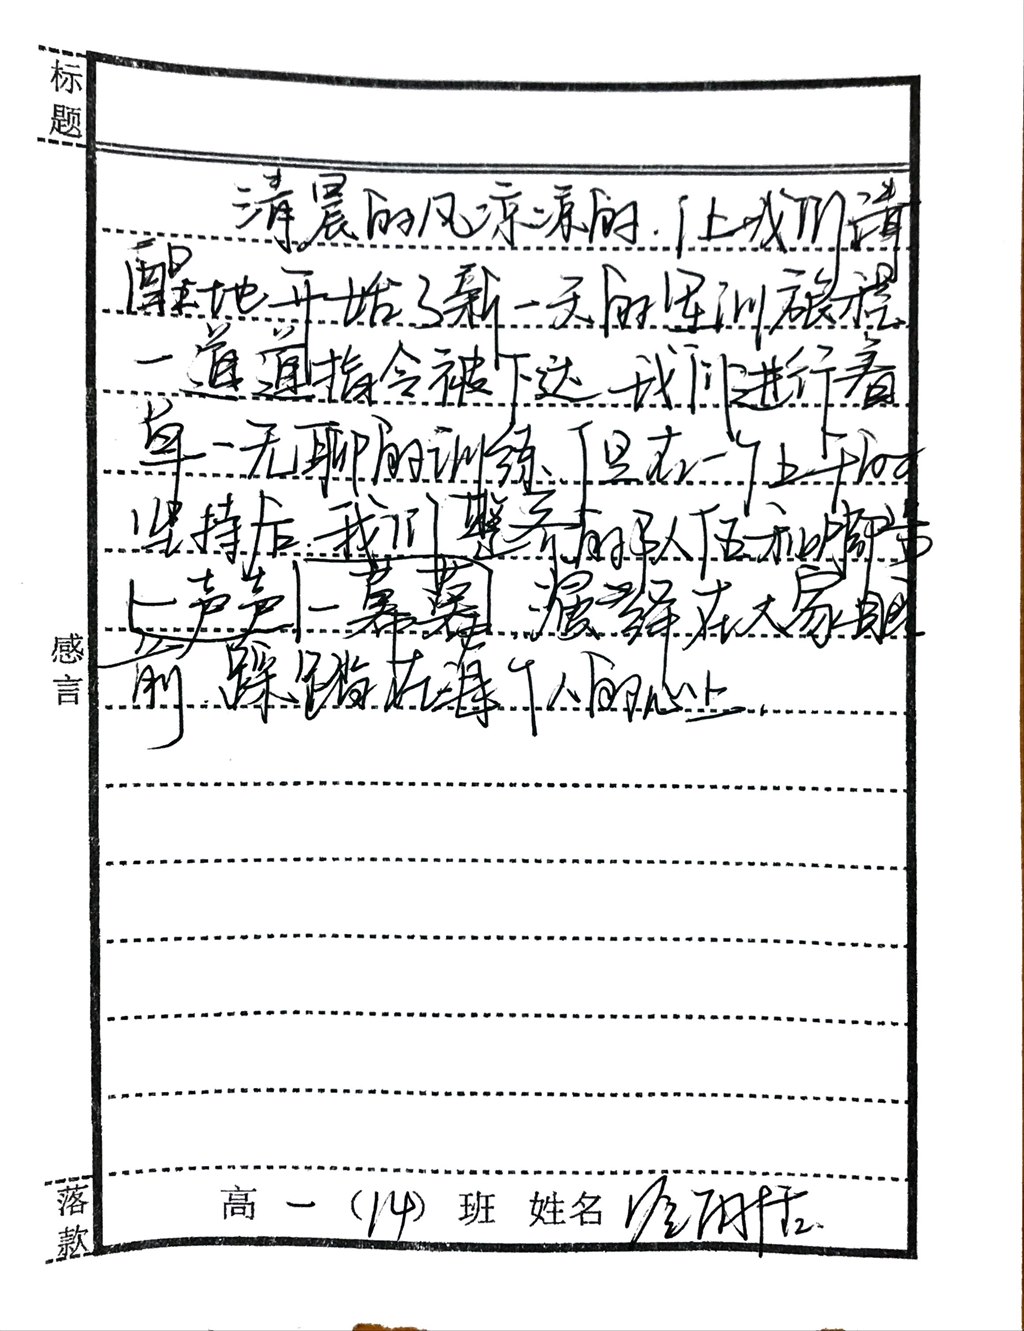 标题
清晨的风凉凉的.让我们清
醒地开始了新一天的军训旅程.
一道道指令被下达.我们进行着
单一无聊的训练、但在一个上午的
坚持后.我们整齐的队伍和脚步
一声声一幕幕.演绎在大家眼
前.踩踏在每个人的心上.
感言
落款
高一(14)班 姓名